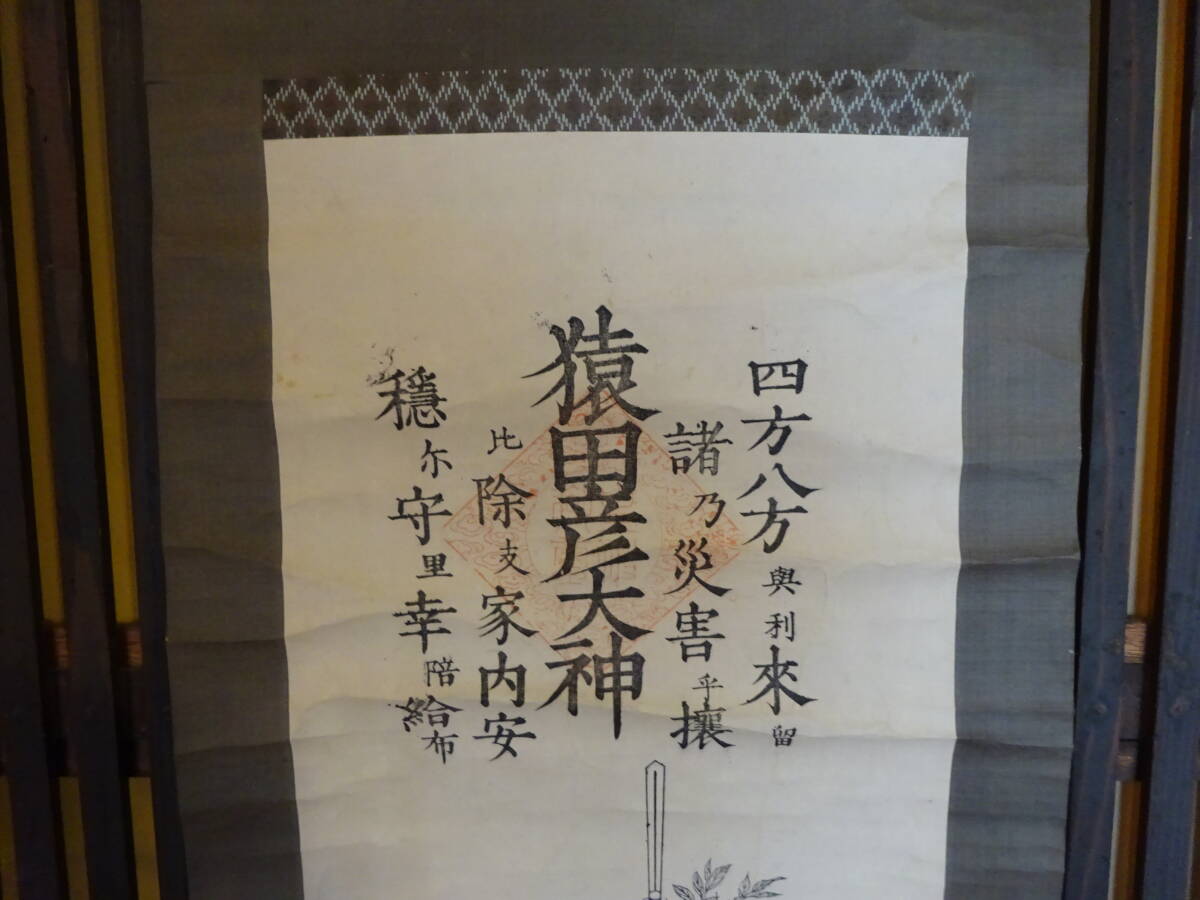 四方八方與利來留
諸乃災害乎攘
猿田彦大神
比除支家内安
穩尓守里幸陪給布